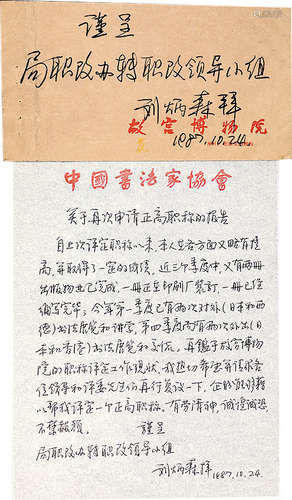 谨呈
局职改办转职改领导小组
刘炳森拜
故宫博物院
1987.10.24.
中國書法家協會
关于再次申请正高职称的报告
自上次评定职称以来,本人在各方面又略有提
高,并取得了一定的成绩,近三个季度中,又有两册
出版物业已完成,一册正在印刷厂装订,一册已经
编写完毕;今年第一季度已有两次对外(日本和西
德)书法展览和讲学,第四季度尚有两次外出(日
本和香港)书法展览和交流。再鉴于故宫博物
院的职称评定工作现状,我恳切希望并请求各
位领导和评委先生们再行复议一下,
以帮我评定一个正高职称。有劳清神,诚惶诚恐
不禁赧颜。
谨呈
局职改办转职改领导小组
刘炳森拜 1987.10.24.